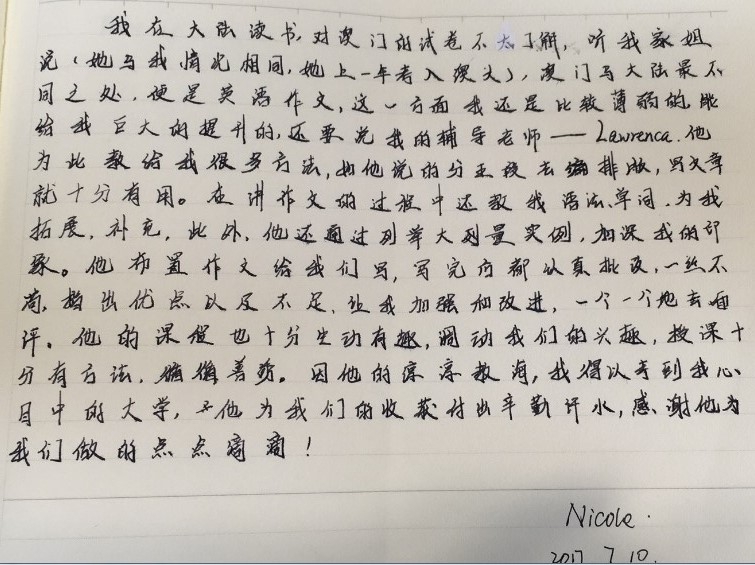 我在大陆读书,对澳门的试卷不太了解,听我家姐
说(她与我情况相同,她上一年考入澳大),澳门与大陆最不
同之处,便是英语作文,这一方面我还是比较薄弱的,能
给我巨大的提升的,还要说我的辅导老师——Lawrenca.他
为此教给我很多方法,如他说的分五段去编排版,写文章
就十分有用。在讲作文的过程中还教我语法、单词,为我
拓展,补充,此外,他还通过列举大量实例,加深我的印
象。他布置作文给我们写,写完后都认真批改,一丝不
苟,指出优点以及不足,让我加强和改进,一个一个地去面
评。他的课程也十分生动有趣,调动我们的兴趣,授课十
分有方法,循循善诱。因他的谆谆教诲,我得以考到我心
目中的大学,他为我们的收获付出辛勤汗水,感谢他为
我们做的点点滴滴!
Nicole.
2017 7 10.